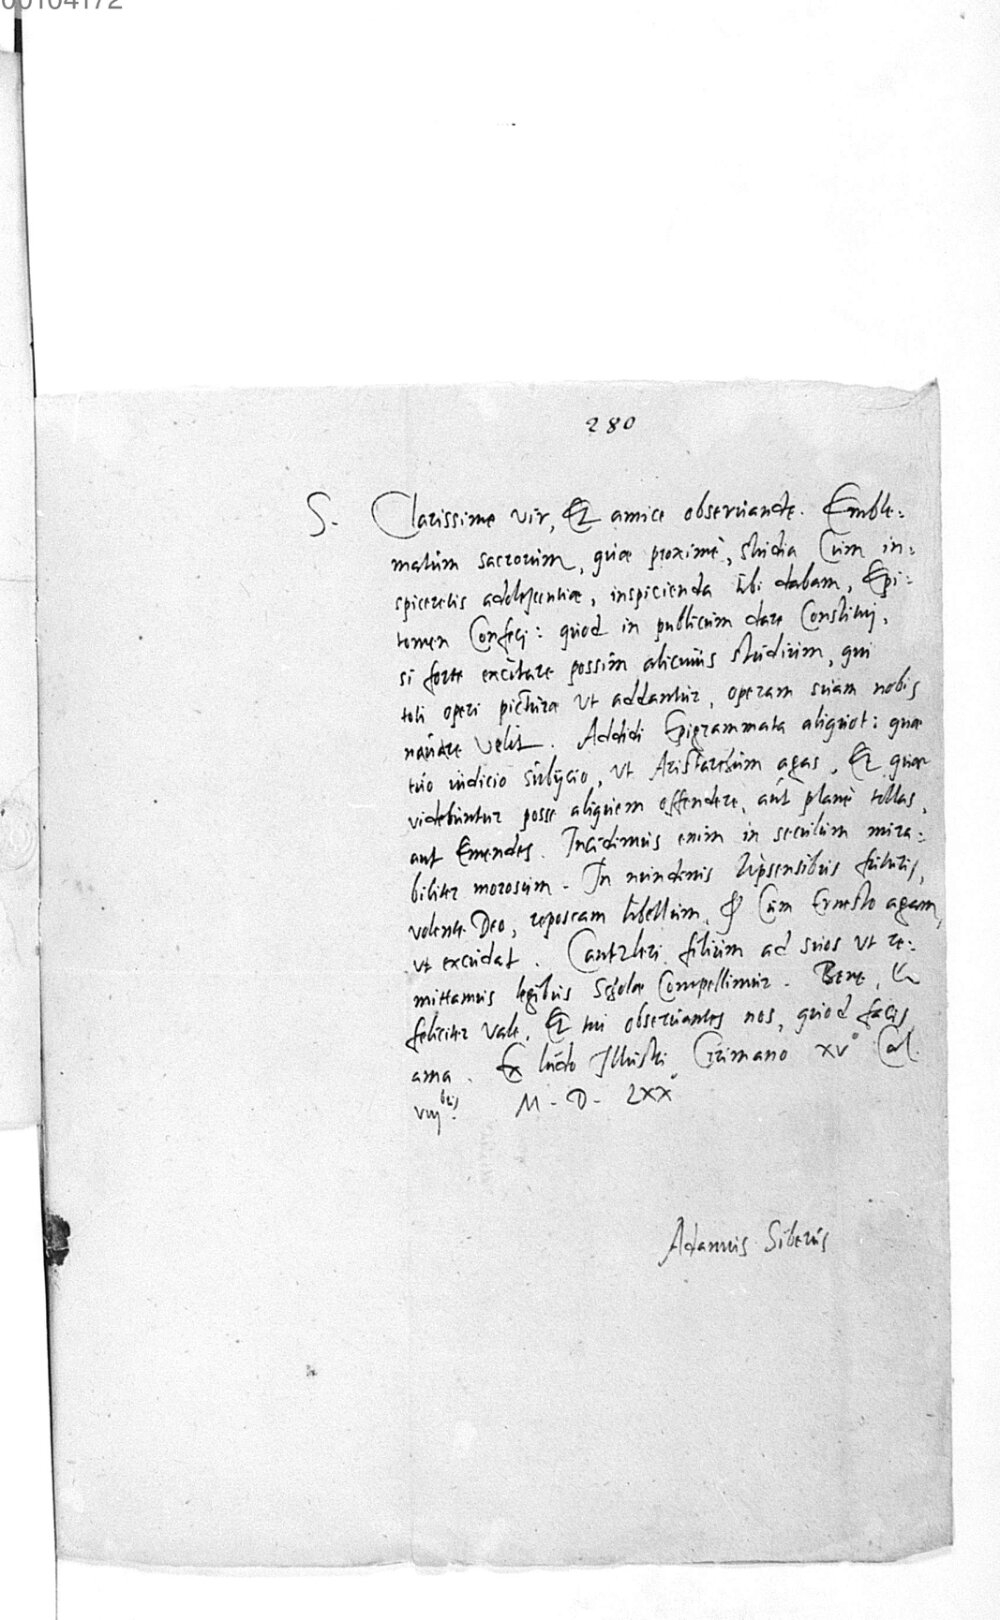 00104172
280
S. Clarissime vir, Et amice observande. Emble:
matum sacrorum, quæ proximè, studia Cùm in:
spiceretis adolescentiæ, inspicienda tibi dabam, Epi:
tomen Confeci: quod in publicum dare Constitui,
si forte excitare possim alicuius studium, qui
toti operi picturæ ut addantur, operam suam nobis
navare velit. Addidi Epigrammata aliquot: quæ
tuo iudicio subijcio, ut Aristarchum agas, Et quæ
videbuntur posse aliquem offendere, aut planè tollas,
aut Emendes. Incidimus enim in seculum mira:
biliter morosum. In nundinis Lipsensibus futuris,
volente Deo, reposcam libellum, & Cum Ernesto agam,
ut excudat. Cantzleri filium ad suos ut re:
mittamus legibus Scholæ Compellimur. Bene, &
feliciter vale, Et tui observantes nos, quod facis,
ama. Ex ludo Illustri Grimano XV° Cal.
VIIbris M. D. LXX°
Adamus Siberus